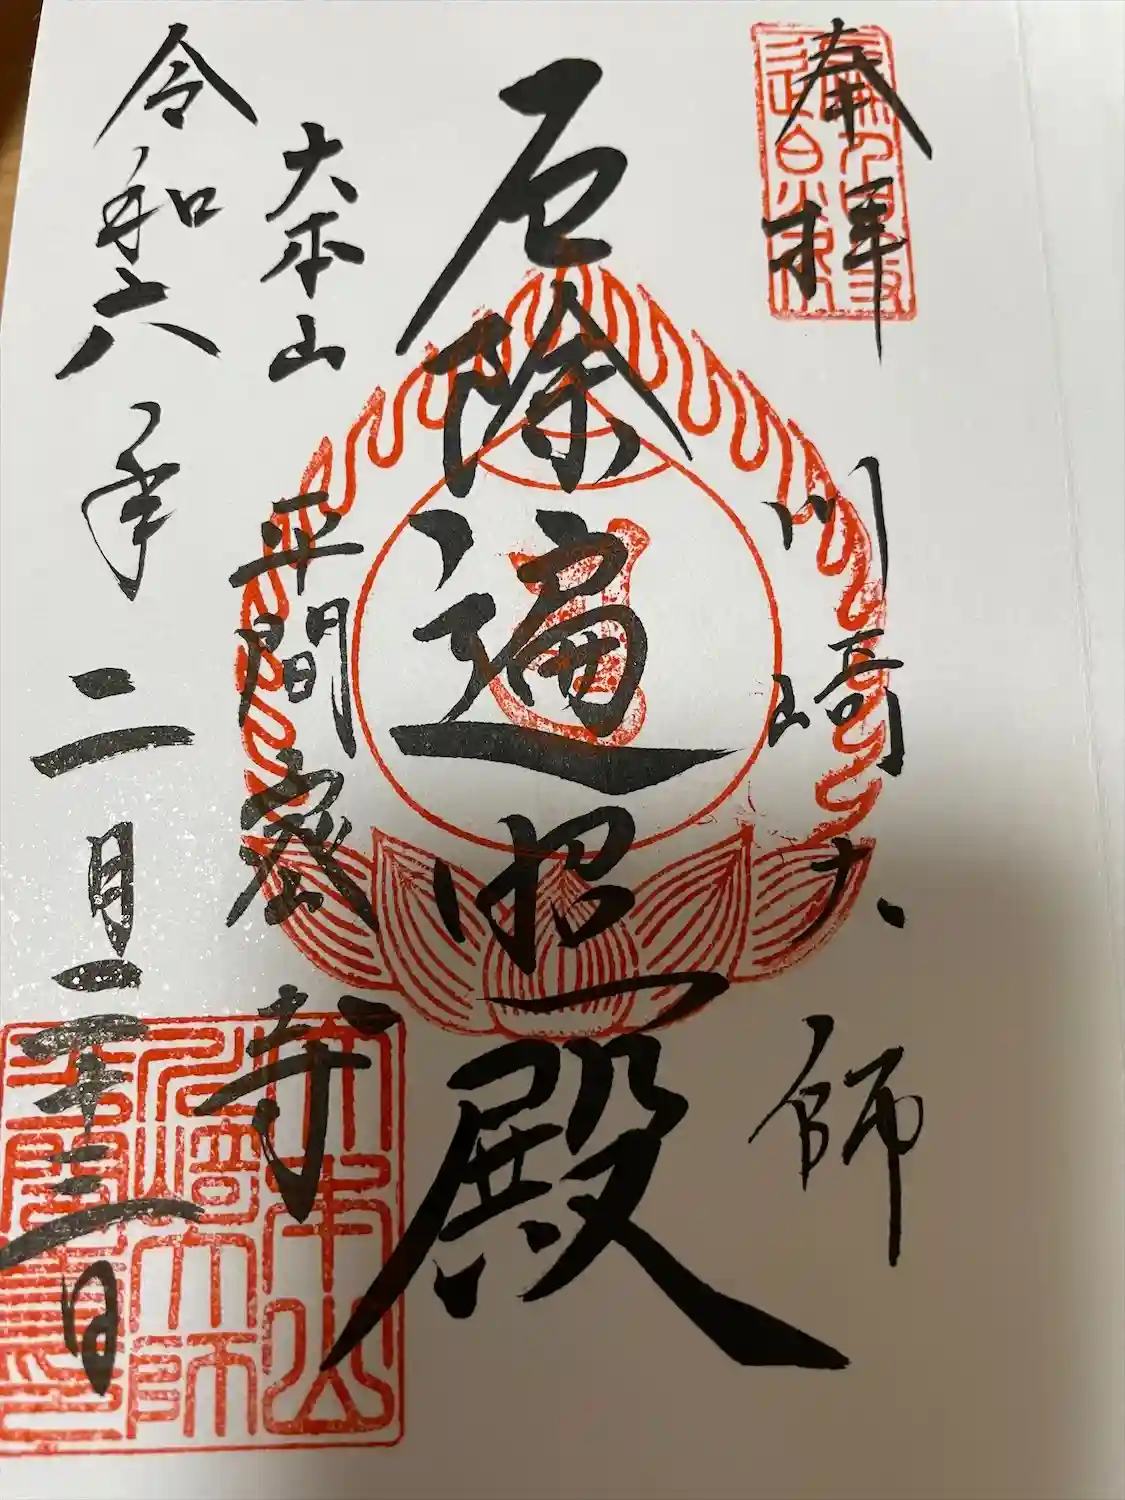 奉拝
川崎大師
厄除遍照殿
大本山
平間密寺
令和六年二月二十三日
大本山
川崎大師